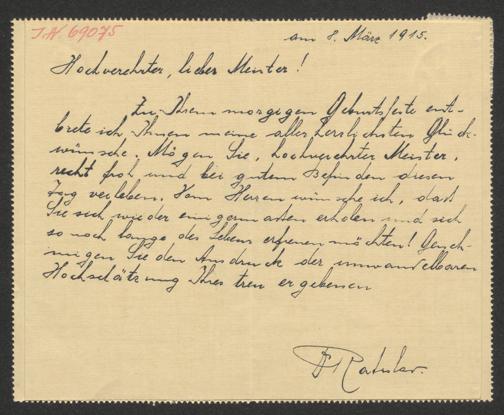 J.N 69075
am 8. März 1915.
Hochverehrter, lieber Meister!
Zu Ihrem morgigen Geburtsfeste ent-
biete ich Ihnen meine allerherzlichsten Glück-
wünsche. Mögen Sie, hochverehrter Meister,
recht froh und bei gutem Befinden diesen
Tag verleben. Vom Herzen wünsche ich, daß
Sie sich wieder einigermaßen erholen und sich
so noch lange des Lebens erfreuen möchten! Geneh-
migen Sie den Ausdruck der unwandelbaren
Hochschätzung Ihres treu ergebenen